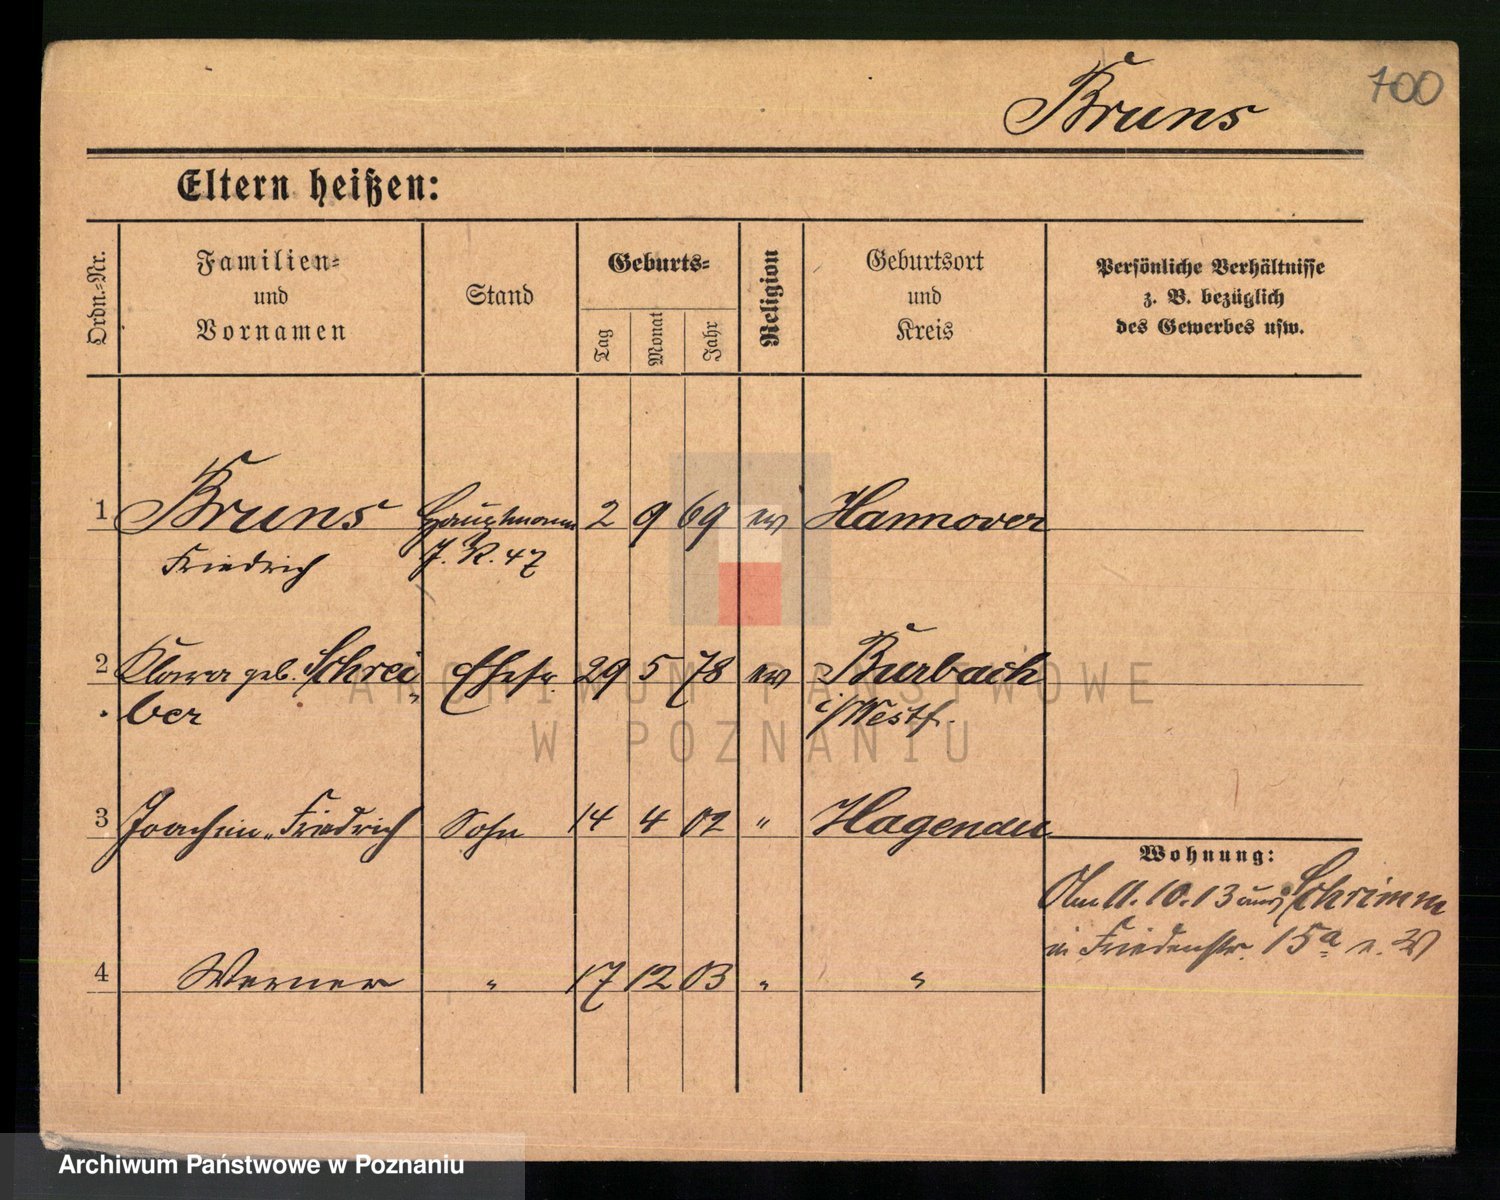 100
Bruns
Eltern heißen:
Ordn.-Nr.
Familien-
und
Vornamen
Stand
Geburts-
Tag
Monat
Jahr
Religion
Geburtsort
und
Kreis
Persönliche Verhältnisse
z. B. bezüglich
des Gewerbes usw.
1 Bruns Hauptmann 2 9 69 ev Hannover
Friedrich J. R. 47
2 Klara geb. Schrei Ehefr. 29 5 78 ev Burbach
ber i/Westf.
3 Joachim-Friedrich Sohn 14 4 02 " Hagenau
Wohnung:
Am 11.10.13 aus Schrimm
in Friedenstr. 15a
4 Werner " 17 12 03 " "
ARCHIWUM PAŃSTWOWE
W POZNANIU
Archiwum Państwowe w Poznaniu